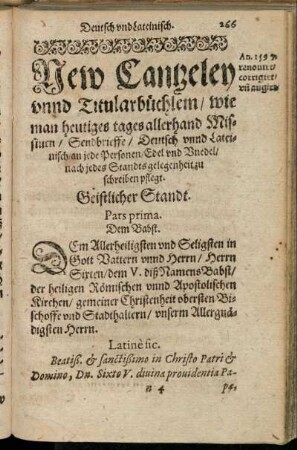 Deutsch vnd Lateinisch. 266
New Cantzeley
vnnd Titularbüchlein/ wie
man heutiges tages allerhand Mis-
siuen/ Sendbrieffe/ Deutsch vnnd Latei-
nisch/ an jede Personen/ Edel vnd Vnedel/
nach jedes Standts gelegenheit zu
schreiben pflegt.
An. 1597
renouirt/
corrigirt/
vñ augirt
Geistlicher Standt.
Pars prima.
Dem Babst.
DEm Allerheiligsten vnd Seligsten in
Gott Vattern vnnd Herrn/ Herrn
Sixten/ dem V. diß Namens Babst/
der heiligen Römischen vnnd Apostolischen
Kirchen/ gemeiner Christenheit obersten Bi-
schoffe vnd Stadthaltern/ vnserm Allergnä-
digsten Herrn.
Latinè sic.
Beatiß. & sanctißimo in Christo Patri &
Domino, Dn. Sixto V. diuina prouidentia Pa-
n 4 pæ,